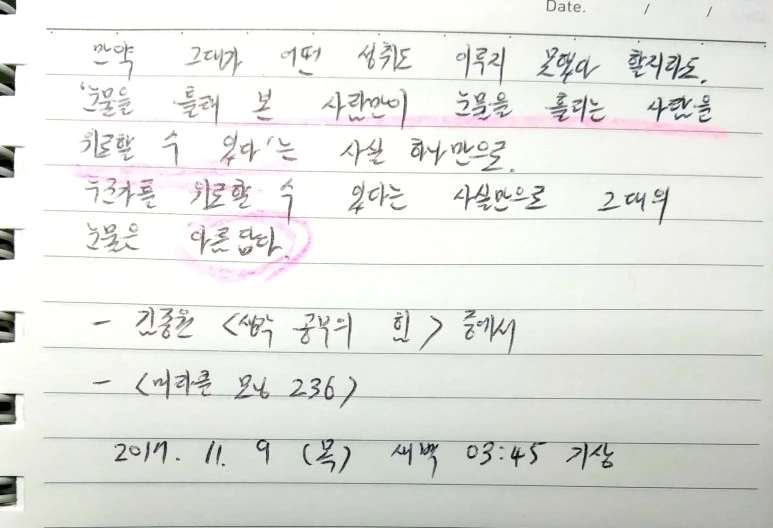 Date. / /
만약 그대가 어떤 성취도 이루지 못했다 할지라도,
'눈물을 흘려 본 사람만이 눈물을 흘리는 사람을
위로할 수 있다'는 사실 하나만으로,
누군가를 위로할 수 있다는 사실만으로 그대의
눈물은 아름답다.
- 김종원 <생각 공부의 힘> 중에서
- <미라클 모닝 236>
2017. 11. 9 (목) 새벽 03:45 기상